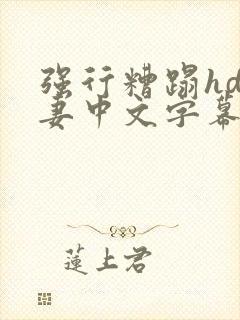 强行糟蹋hd
妻中文字幕
蓮上君